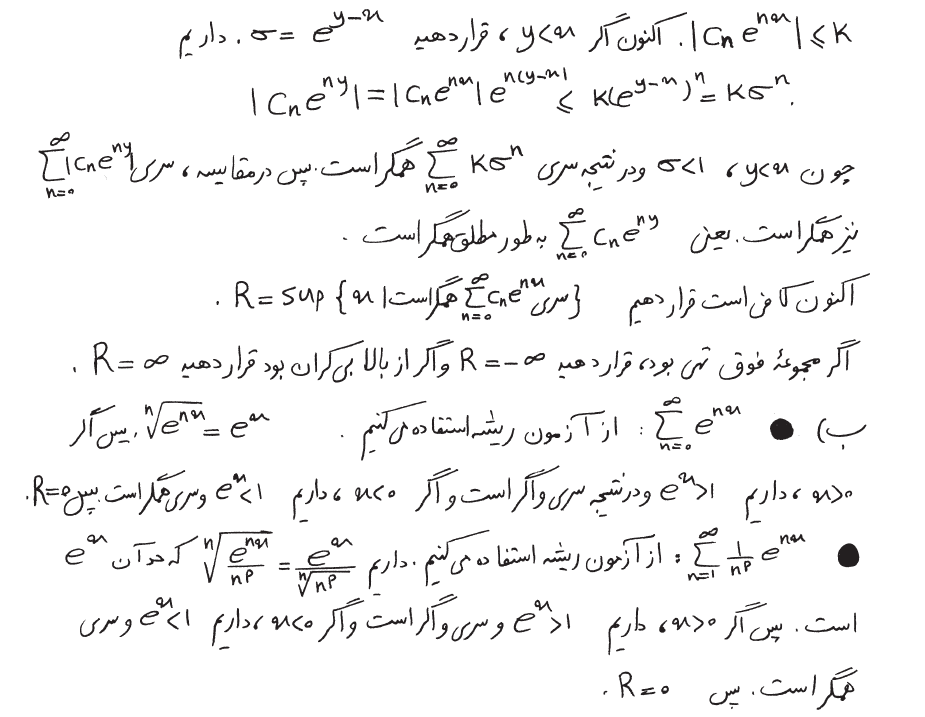 |cₙeⁿˣ| ≤ K. اکنون اگر y<x، قرار دهید σ = e^(y-x). داریم
|cₙe^(ny)| = |cₙe^(nx)| e^(n(y-x)) ≤ K(e^(y-x))ⁿ = Kσⁿ.
چون y<x، σ<1 و در نتیجه سری ∑_{n=0}^∞ Kσⁿ همگراست. پس در مقایسه، سری ∑_{n=0}^∞ |cₙe^(ny)|
نیز همگراست. یعنی ∑_{n=0}^∞ cₙe^(ny) به طور مطلق همگراست.
اکنون کافی است قرار دهیم R = sup {x | سری ∑_{n=0}^∞ cₙe^(nx) همگراست}.
اگر مجموعهٔ فوق تهی بود، قرار دهید R = -∞ و اگر از بالا بی‌کران بود قرار دهید R = ∞.
ب) ● ∑_{n=0}^∞ e^(nx) : از آزمون ریشه استفاده می‌کنیم. ⁿ√(e^(nx)) = e^x. پس اگر
x>0، داریم e^x>1 و در نتیجه سری واگراست و اگر x<0، داریم e^x<1 و سری همگراست. پس R=0.
● ∑_{n=1}^∞ (1/n^p) e^(nx) : از آزمون ریشه استفاده می‌کنیم. داریم ⁿ√(e^(nx)/n^p) = e^x/ⁿ√(n^p) که حد آن e^x
است. پس اگر x>0، داریم e^x>1 و سری واگراست و اگر x<0، داریم e^x<1 و سری
همگراست. پس R=0.